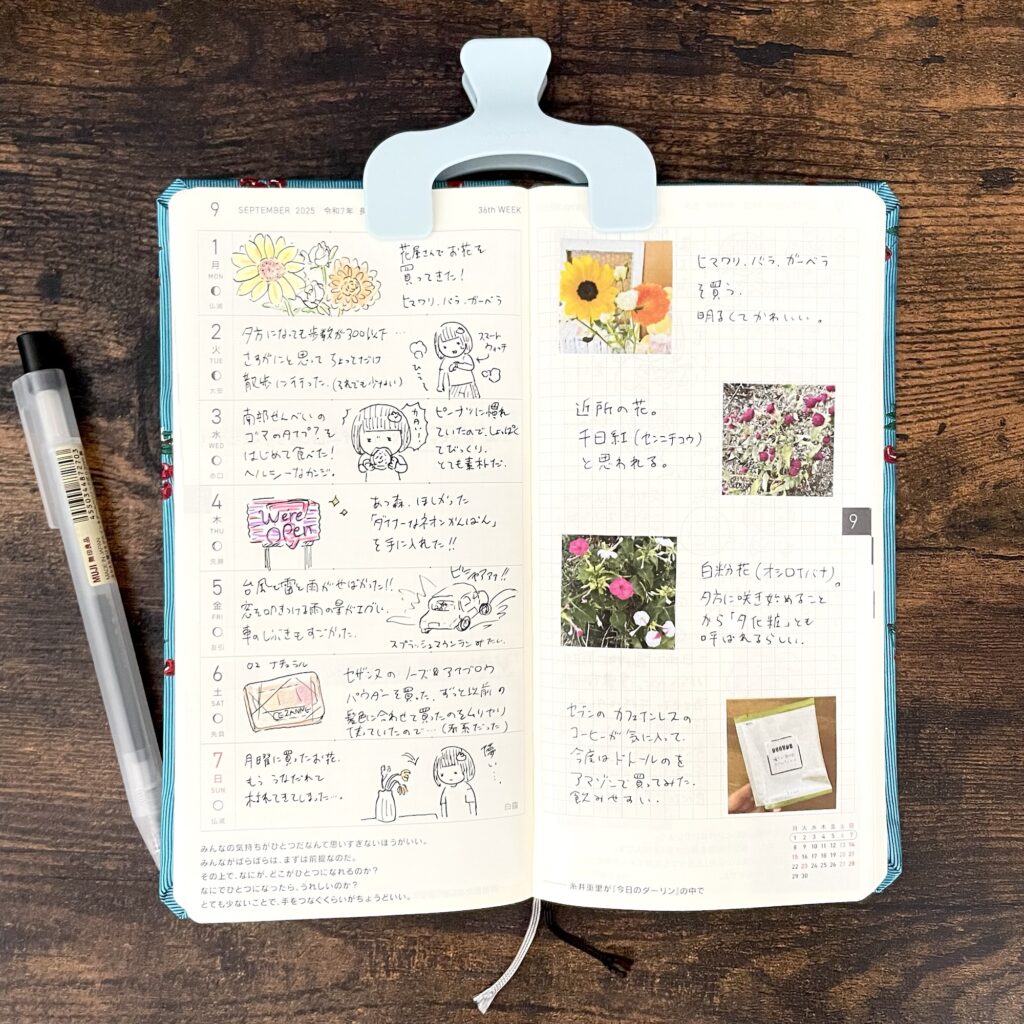 9 SEPTEMBER 2025 令和7年 長
36th WEEK
1
月
MON
仏滅
花屋さんでお花を
買ってきた!
ヒマワリ、バラ、ガーベラ
2
火
TUE
大安
夕方になっても歩数が300以下…
さすがにと思ってちょっとだけ
散歩に行った。(それでも少ない)
スマート
ウォッチ
3
水
WED
赤口
南部せんべいの
ゴマのタイプを
はじめて食べた!
ヘルシーなカンジ。
ピーナツに慣れ
ていたので、しょっぱく
てびっくり。
とても素朴だ。
4
木
THU
先勝
Were
Open
あつ森、ほしかった
「ダイナーなネオンかんばん」
を手に入れた!!
5
金
FRI
友引
台風と雷と雨がやばかった!!
窓を叩きつける雨の量がエグい。
車のしぶきもすごかった。
スプラッシュマウンテンみたい。
6
土
SAT
先負
02 ナチュラル
CEZANNE
セザンヌの ノーズ&アイブロウ
パウダーを買った。ずっと以前の
髪色に合わせて買ったのをムリヤリ
使っていたので…(赤系だった)
7
日
SUN
仏滅
月曜に買ったお花。
もう うなだれて
枯れてきてしまった…。
儚い…
白露
みんなの気持ちがひとつだなんて思いすぎないほうがいい。
みんながばらばらは、まずは前提なのだ。
その上で、なにが、どこがひとつになれるのか?
なにでひとつになったら、うれしいのか?
とても少ないことで、手をつなぐくらいがちょうどいい。
ヒマワリ、バラ、ガーベラ
を買う。
明るくてかわいい。
近所の花。
千日紅(センニチコウ)
と思われる。
9
白粉花(オシロイバナ)。
夕方に咲き始めること
から「夕化粧」とも
呼ばれるらしい。
セブンのカフェインレスの
コーヒーが気に入って、
今度はドトールのを
アマゾンで買ってみた。
飲みやすい。
月 火 水 木 金 土 日
1 2 3 4 5 6 7
8 9 10 11 12 13 14
15 16 17 18 19 20 21
22 23 24 25 26 27 28
29 30
──糸井重里が『今日のダーリン』の中で
MUJI 無印良品
4550344872703